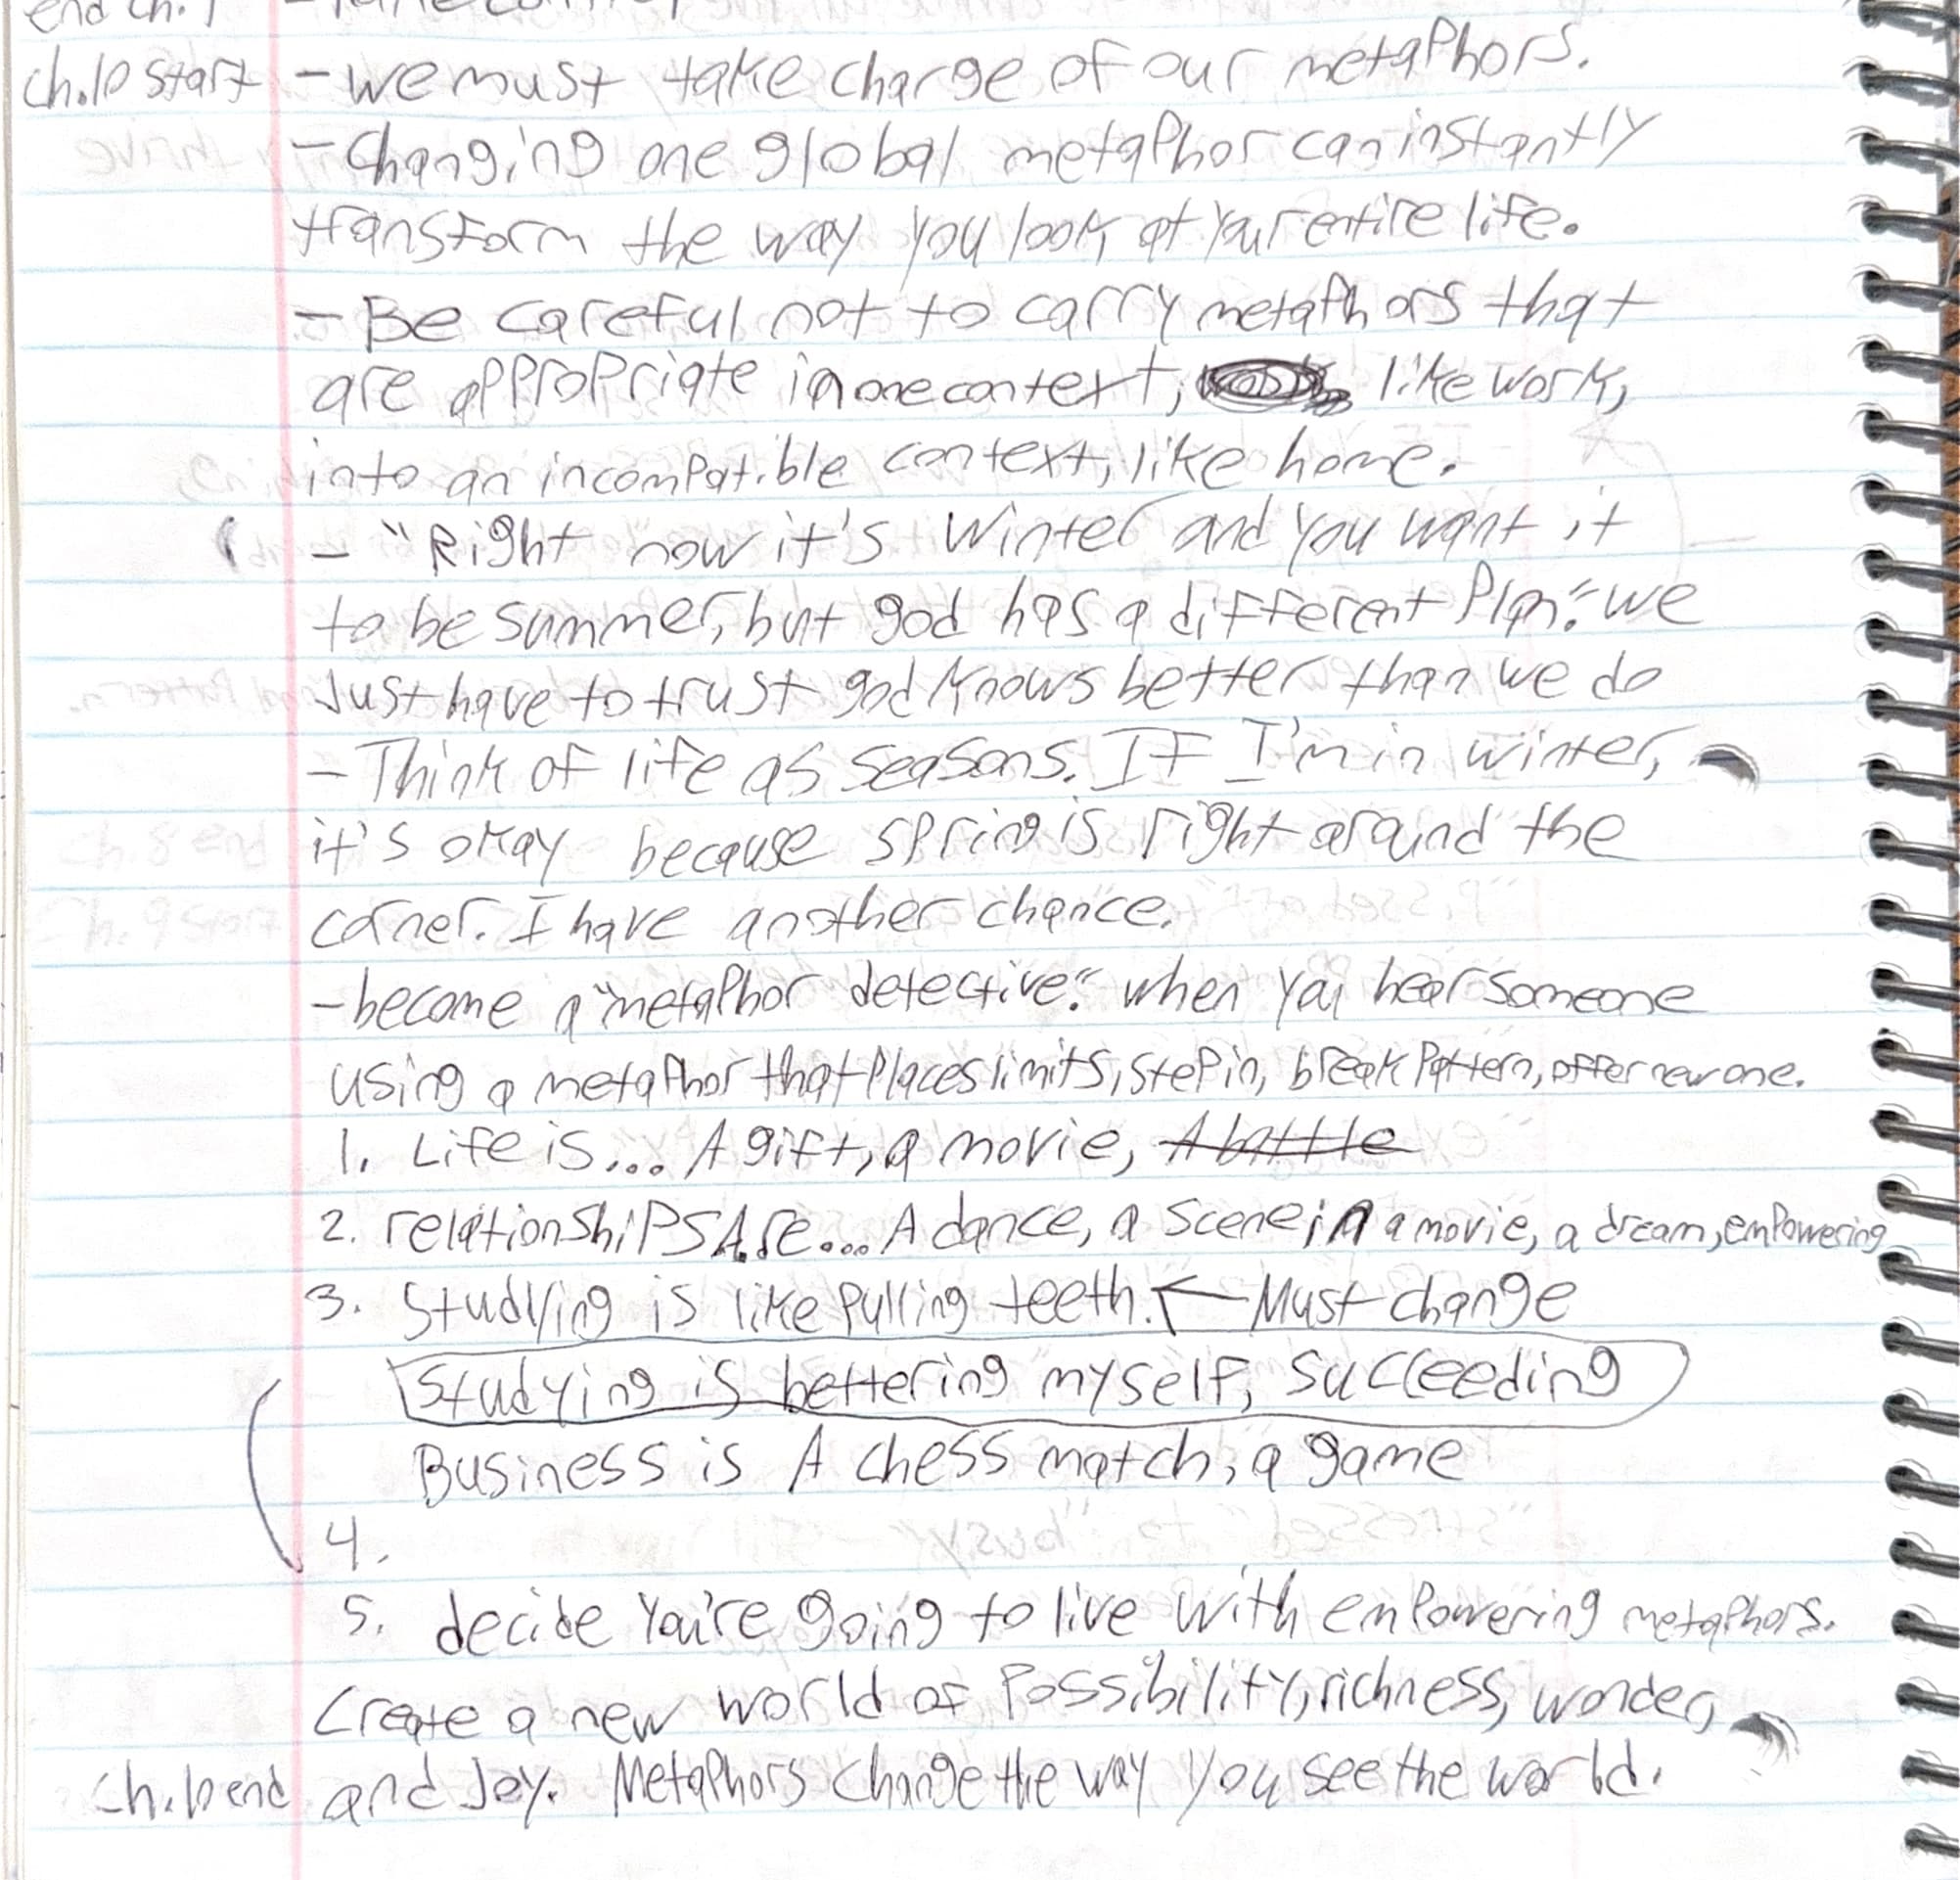 end ch.
ch.10 start - we must take charge of our metaphors.
- Changing one global metaphor can instantly
transform the way you look at your entire life.
- Be careful not to carry metaphors that
are appropriate in one context, like work,
into an incompatible context, like home.
- "Right now it's winter and you want it
to be summer, but god has a different Plan." we
Just have to trust god knows better than we do
- Think of life as seasons. If I'm in winter,
it's okay because spring is right around the
corner. I have another chance.
- become a "metaphor detective." when you hear someone
using a metaphor that places limits, step in, break pattern, offer new one.
1. Life is... A gift, a movie, A battle
2. relationships Are... A dance, a scene in a movie, a dream, empowering
3. Studying is like pulling teeth. ← Must change
Studying is bettering myself, succeeding
Business is A chess match, a game
4.
5. decide you're going to live with empowering metaphors.
Create a new world of possibility, richness, wonder,
ch.10 end and Joy. Metaphors change the way you see the world.